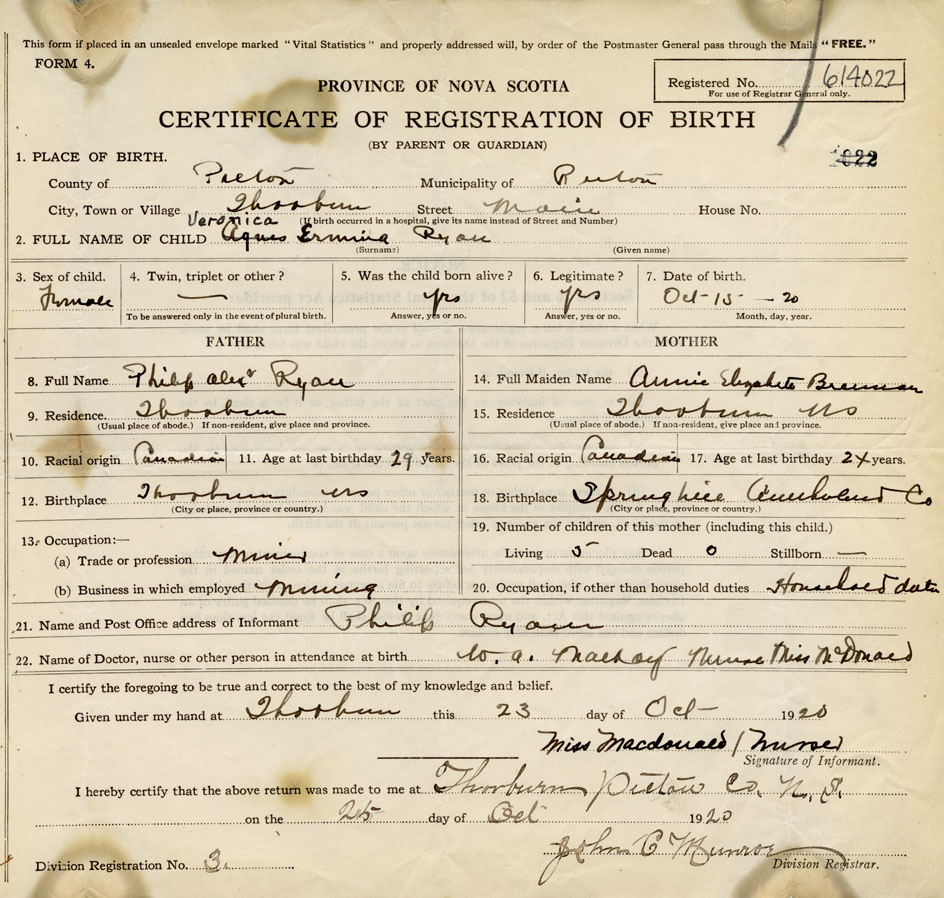 This form if placed in an unsealed envelope marked "Vital Statistics" and properly addressed will, by order of the Postmaster General pass through the Mails "FREE."
FORM 4.
PROVINCE OF NOVA SCOTIA
Registered No. 614022
For use of Registrar General only.
CERTIFICATE OF REGISTRATION OF BIRTH
(BY PARENT OR GUARDIAN)
1. PLACE OF BIRTH.
County of Pictou Municipality of Pictou
City, Town or Village Thorburn Street Main House No.
Veronica (If birth occurred in a hospital, give its name instead of Street and Number)
2. FULL NAME OF CHILD Agnes Ermina Ryan
(Surname) (Given name)
3. Sex of child. 4. Twin, triplet or other? 5. Was the child born alive? 6. Legitimate? 7. Date of birth.
Female — yes yes Oct-15-—20
To be answered only in the event of plural birth. Answer, yes or no. Answer, yes or no. Month, day, year.
FATHER MOTHER
8. Full Name Philip Alexr Ryan 14. Full Maiden Name Annie Elizabeth Brennan
9. Residence. Thorburn 15. Residence Thorburn NS
(Usual place of abode.) If non-resident, give place and province. (Usual place of abode.) If non-resident, give place and province.
10. Racial origin Canadian 11. Age at last birthday 29 years. 16. Racial origin Canadian 17. Age at last birthday years.
12. Birthplace Thorburn NS 18. Birthplace Springhill Cumberland Co
(City or place, province or country.) (City or place, province or country.)
13. Occupation:— 19. Number of children of this mother (including this child.)
(a) Trade or profession Miner Living 5 Dead 0 Stillborn —
(b) Business in which employed Mining 20. Occupation, if other than household duties Household duties
21. Name and Post Office address of Informant Philip Ryan
22. Name of Doctor, nurse or other person in attendance at birth W. A. MacKay Nurse Miss McDonald
I certify the foregoing to be true and correct to the best of my knowledge and belief.
Given under my hand at Thorburn this 23 day of Oct- 1920
Miss Macdonald / Nurse
Signature of Informant.
I hereby certify that the above return was made to me at Thorburn, Pictou Co. N. S.
on the 25 day of Oct 1920
John C Munroe
Division Registration No. 3. Division Registrar.